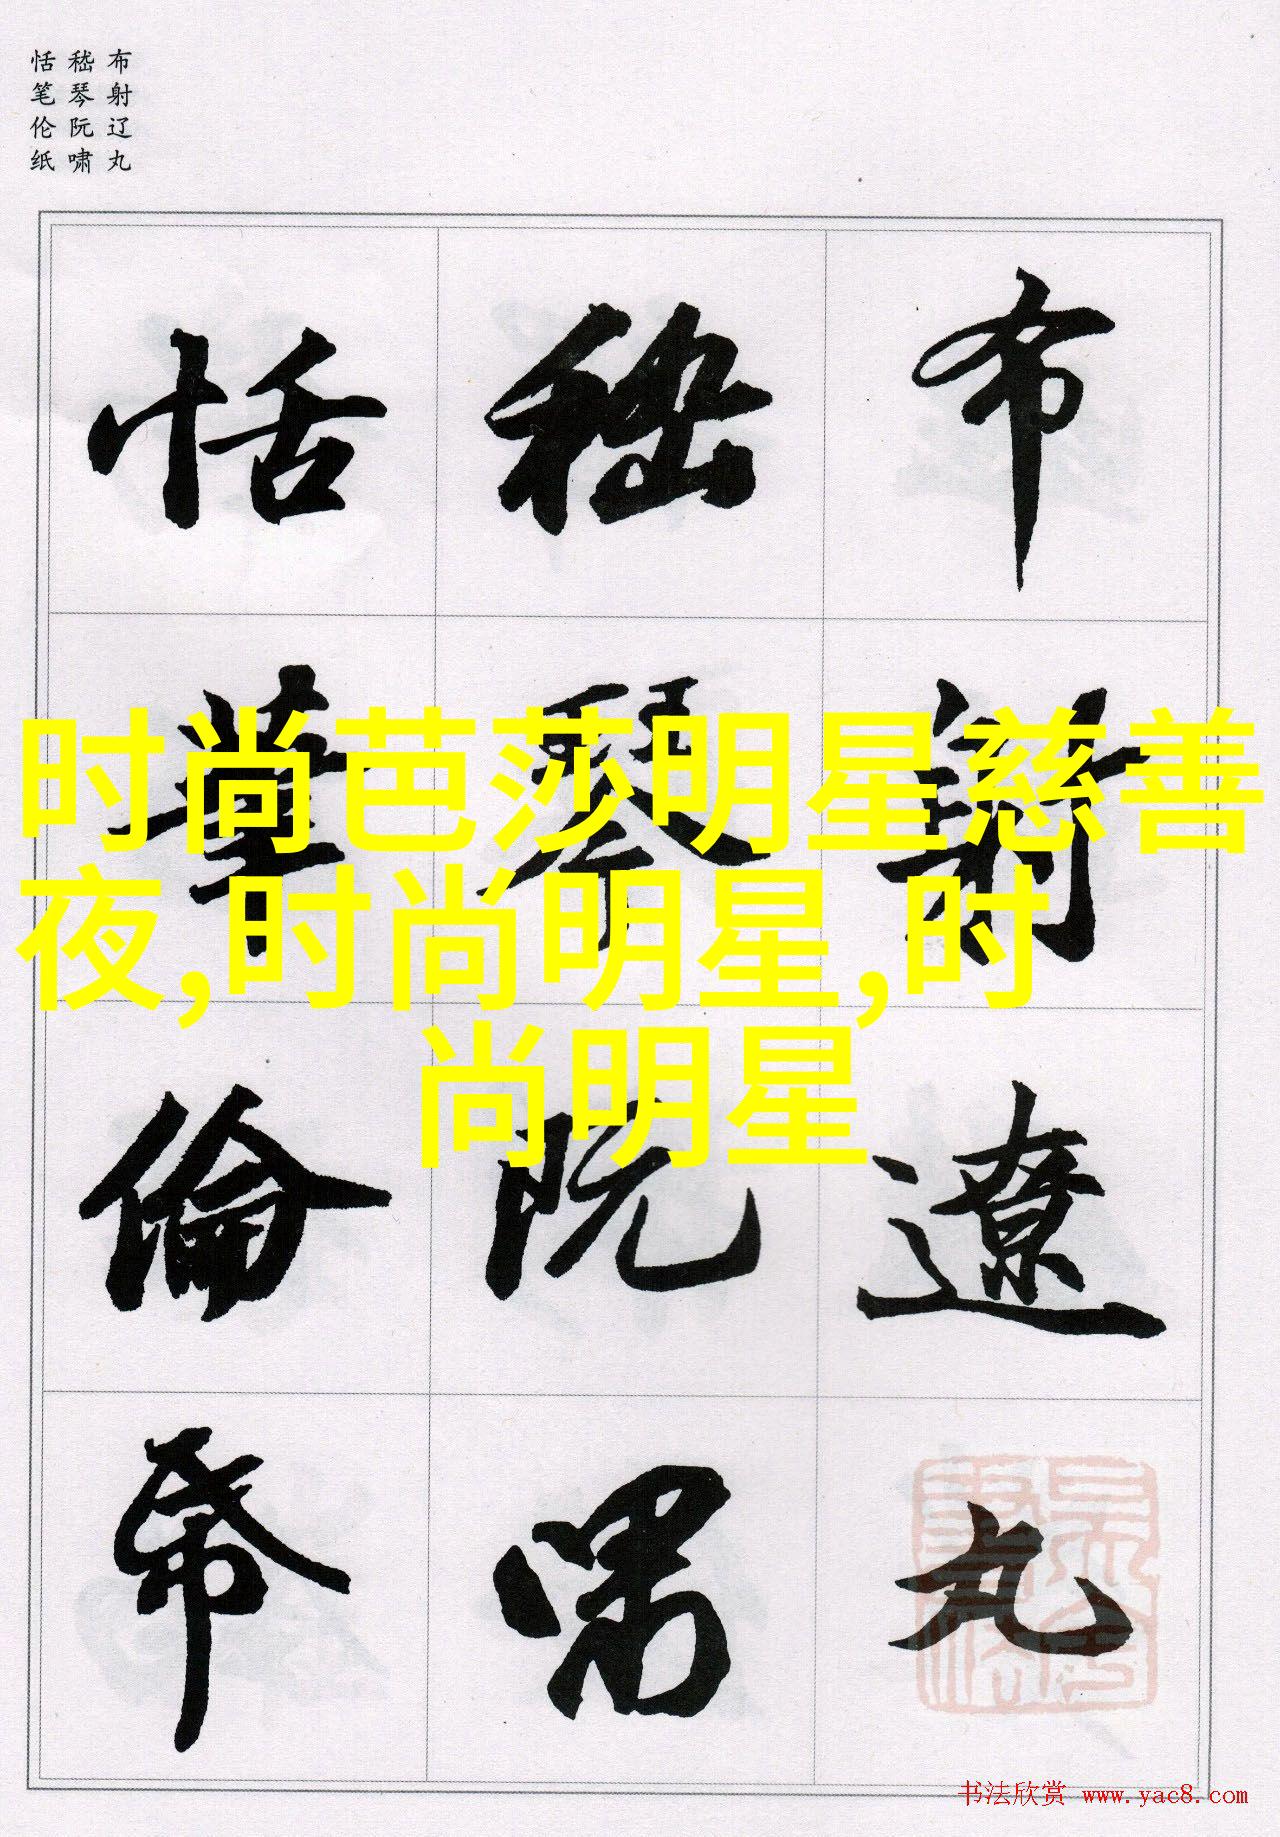 布射辽丸
嵇琴阮啸
恬笔伦纸
布
射
遼
丸
嵇
琴
阮
嘯
恬
筆
倫
帋
时尚芭莎明星慈善
夜,时尚明星,时
尚明星
书法欣赏 www.yac8.com